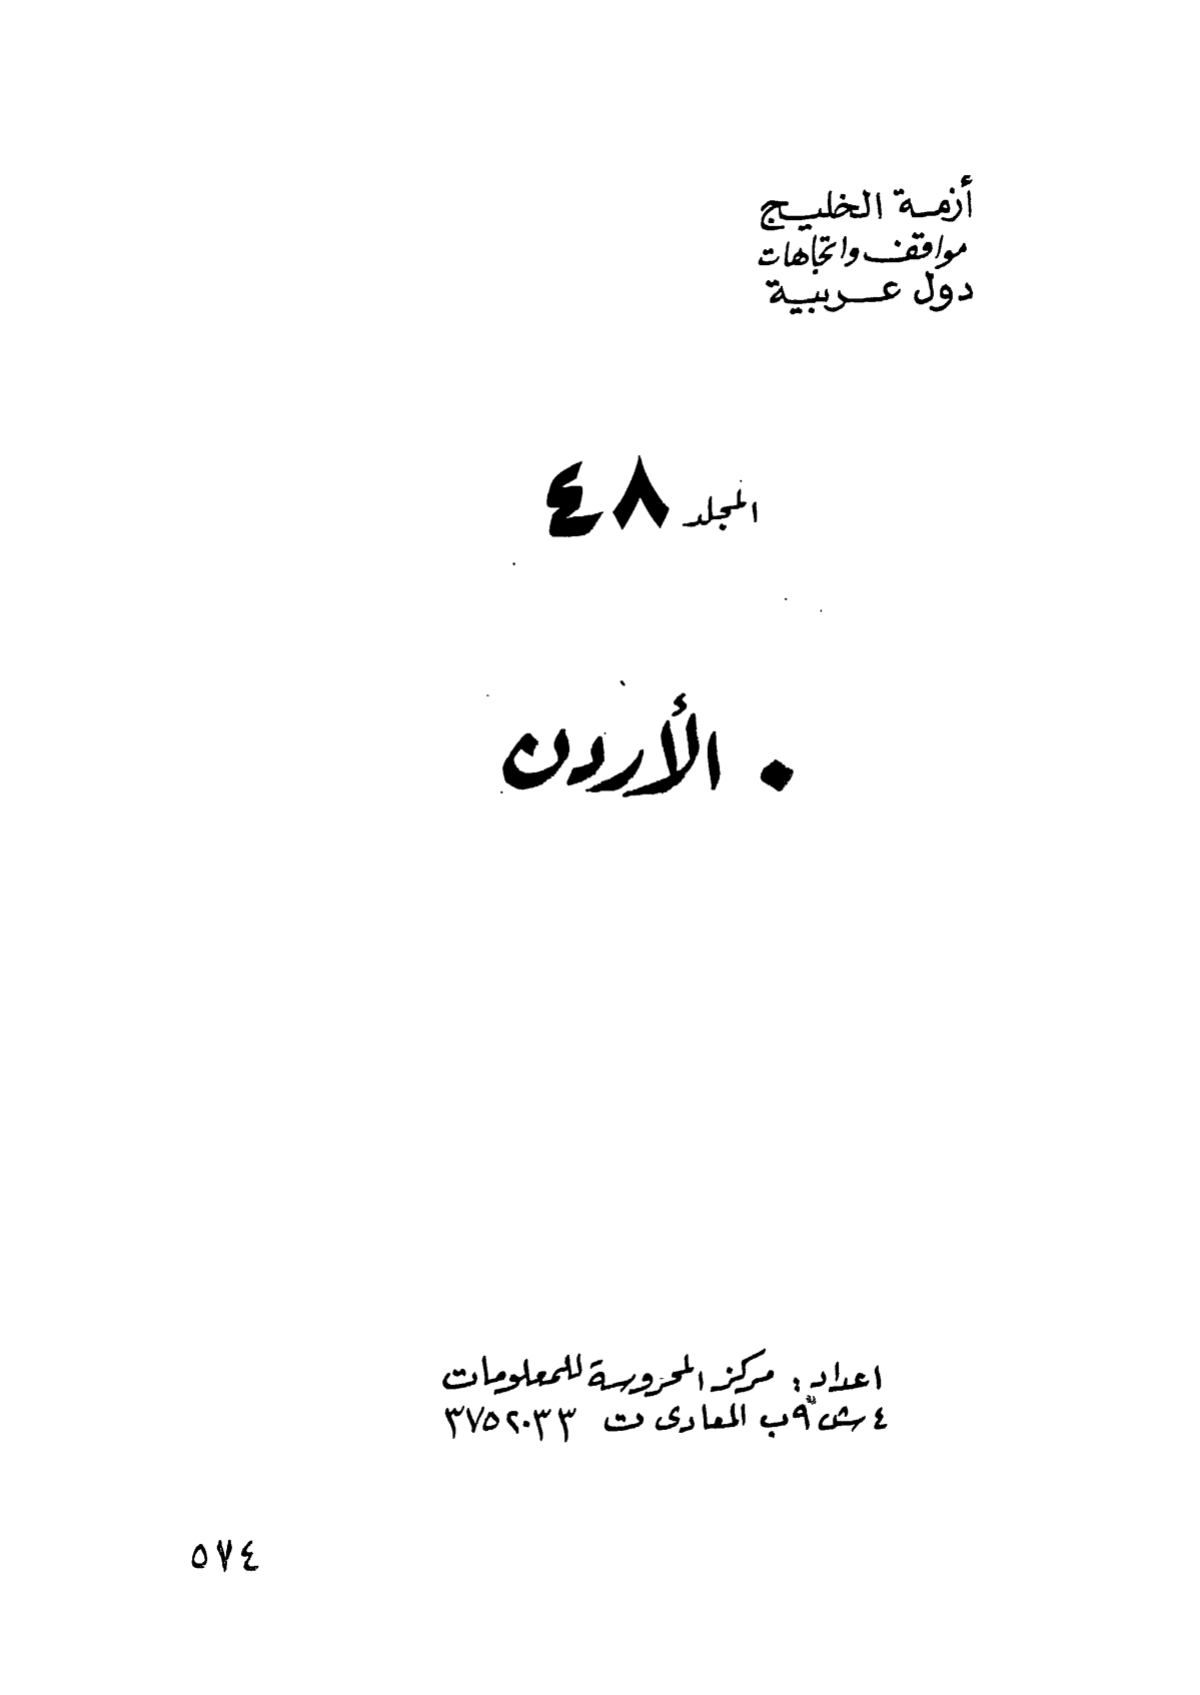 أزمة الخليج
مواقف واتجاهات
دول عربية
المجلد ٤٨
• الأردن
اعداد : مركز المحروسة للمعلومات
٤ ش ٩ب المعادى ت ٣٧٥٢٠٣٣
٥٧٤